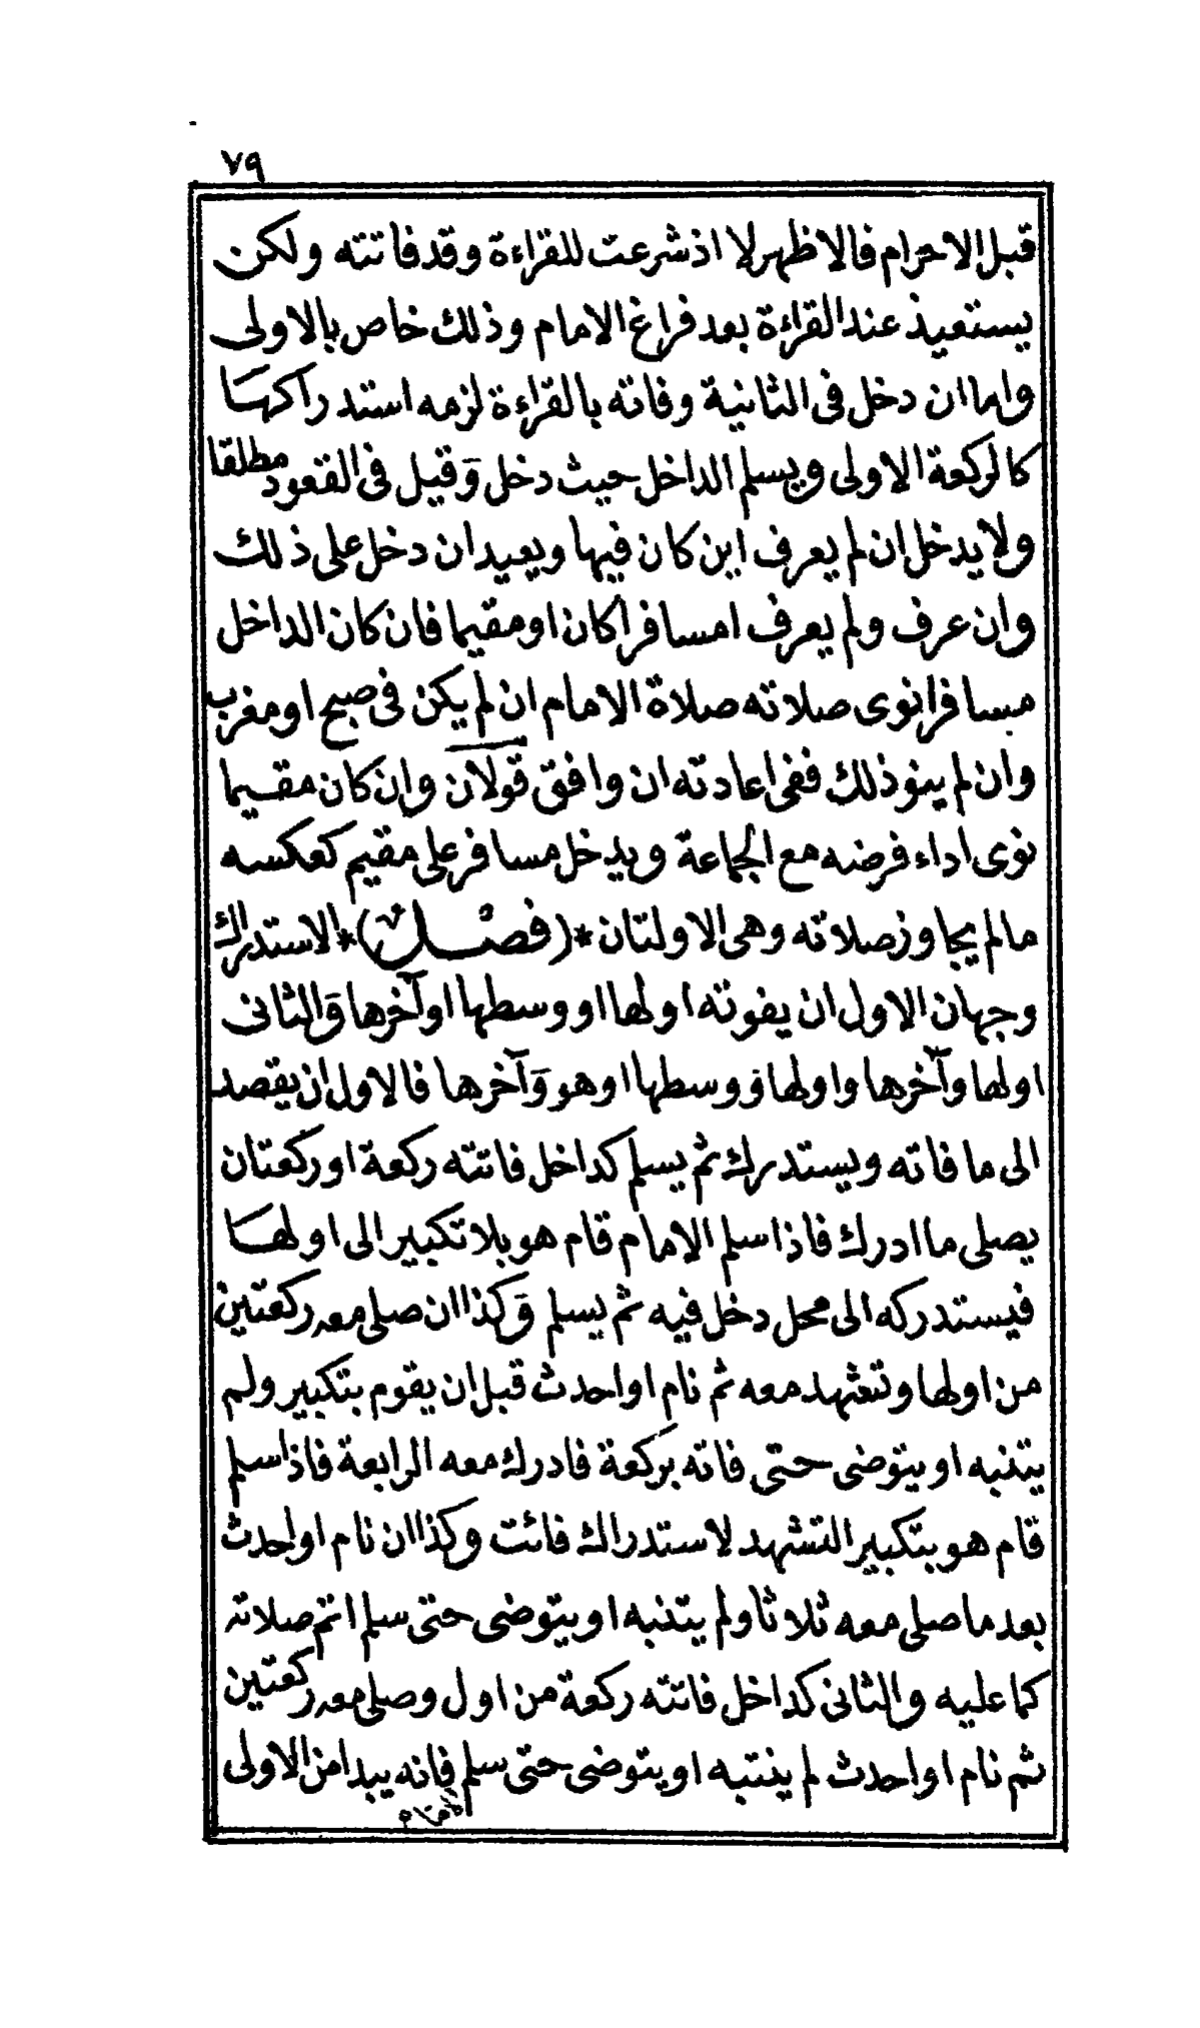 ٧٩
قبل الاحرام فالاظهر لا اذ شرعت للقراءة وقد فاتته ولكن
يستعيذ عند القراءة بعد فراغ الامام وذلك خاص بالاولى
واما ان دخل فى الثانية وفاته بالقراءة لزمه استدراكها
كالركعة الاولى ويسلم الداخل حيث دخل وقيل فى القعود مطلقا
ولا يدخل ان لم يعرف اين كان فيها ويعيد ان دخل على ذلك
وان عرف ولم يعرف امسافرا كان او مقيما فان كان الداخل
مسافرا نوى صلاته صلاة الامام ان لم يكن فى صبح او مغرب
وان لم ينو ذلك ففى اعادته ان وافق قولان وان كان مقيما
نوى اداء فرضه مع الجماعة ويدخل مسافر على مقيم كعكسه
مالم يجاوز صلاته وهى الاولتان *(فصل)* الاستدراك
وجهان الاول ان يفوته اولها او وسطها او آخرها والثانى
اولها وآخرها واولها ووسطها او هو وآخرها فالاول ان يقصد
الى ما فاته ويستدرك ثم يسلم كداخل فاتته ركعة او ركعتان
يصلى ما ادرك فاذا سلم الامام قام هو بلا تكبير الى اولها
فيستدركه الى محل دخل فيه ثم يسلم وكذا ان صلى معه ركعتين
من اولها وتشهد معه ثم نام او احدث قبل ان يقوم بتكبير ولم
يتنبه او يتوضى حتى فاته بركعة فادرك معه الرابعة فاذا سلم
قام هو بتكبير التشهد لاستدراك فائت وكذا ان نام او احدث
بعد ما صلى معه ثلاثا ولم يتنبه او يتوضى حتى سلم اتم صلاته
كما عليه والثانى كداخل فاتته ركعة من اول وصلى معه ركعتين
ثم نام او احدث لم ينتبه او يتوضى حتى سلم فانه يبدا من الاولى